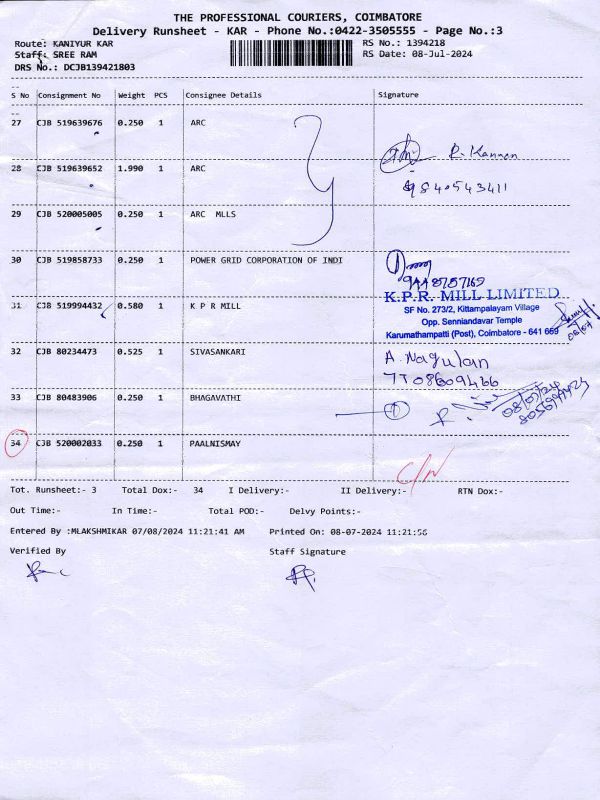 THE PROFESSIONAL COURIERS, COIMBATORE
Delivery Runsheet - KAR - Phone No.:0422-3505555 - Page No.:3
Route: KANIYUR KAR RS No.: 1394218
Staff: SREE RAM RS Date: 08-Jul-2024
DRS No.: DCJB139421803
S No Consignment No Weight PCS Consignee Details Signature
27 CJB 519639676 0.250 1 ARC
R. Kannan
28 CJB 519639652 1.990 1 ARC
9840543411
29 CJB 520005005 0.250 1 ARC MLLS
30 CJB 519858733 0.250 1 POWER GRID CORPORATION OF INDI
K.P.R. MILL LIMITED
31 CJB 519994432 0.580 1 K P R MILL
SF No. 273/2, Kittampalayam Village
Opp. Senniandavar Temple
Karumathampatti (Post), Coimbatore - 641 669
32 CJB 80234473 0.525 1 SIVASANKARI
A. Nagulan
33 CJB 80483906 0.250 1 BHAGAVATHI
08/07/24
34 CJB 520002033 0.250 1 PAALNISMAY
C/N
Tot. Runsheet:- 3 Total Dox:- 34 I Delivery:- II Delivery:- RTN Dox:-
Out Time:- In Time:- Total POD:- Delvy Points:-
Entered By :MLAKSHMIKAR 07/08/2024 11:21:41 AM Printed On: 08-07-2024 11:21:56
Verified By Staff Signature